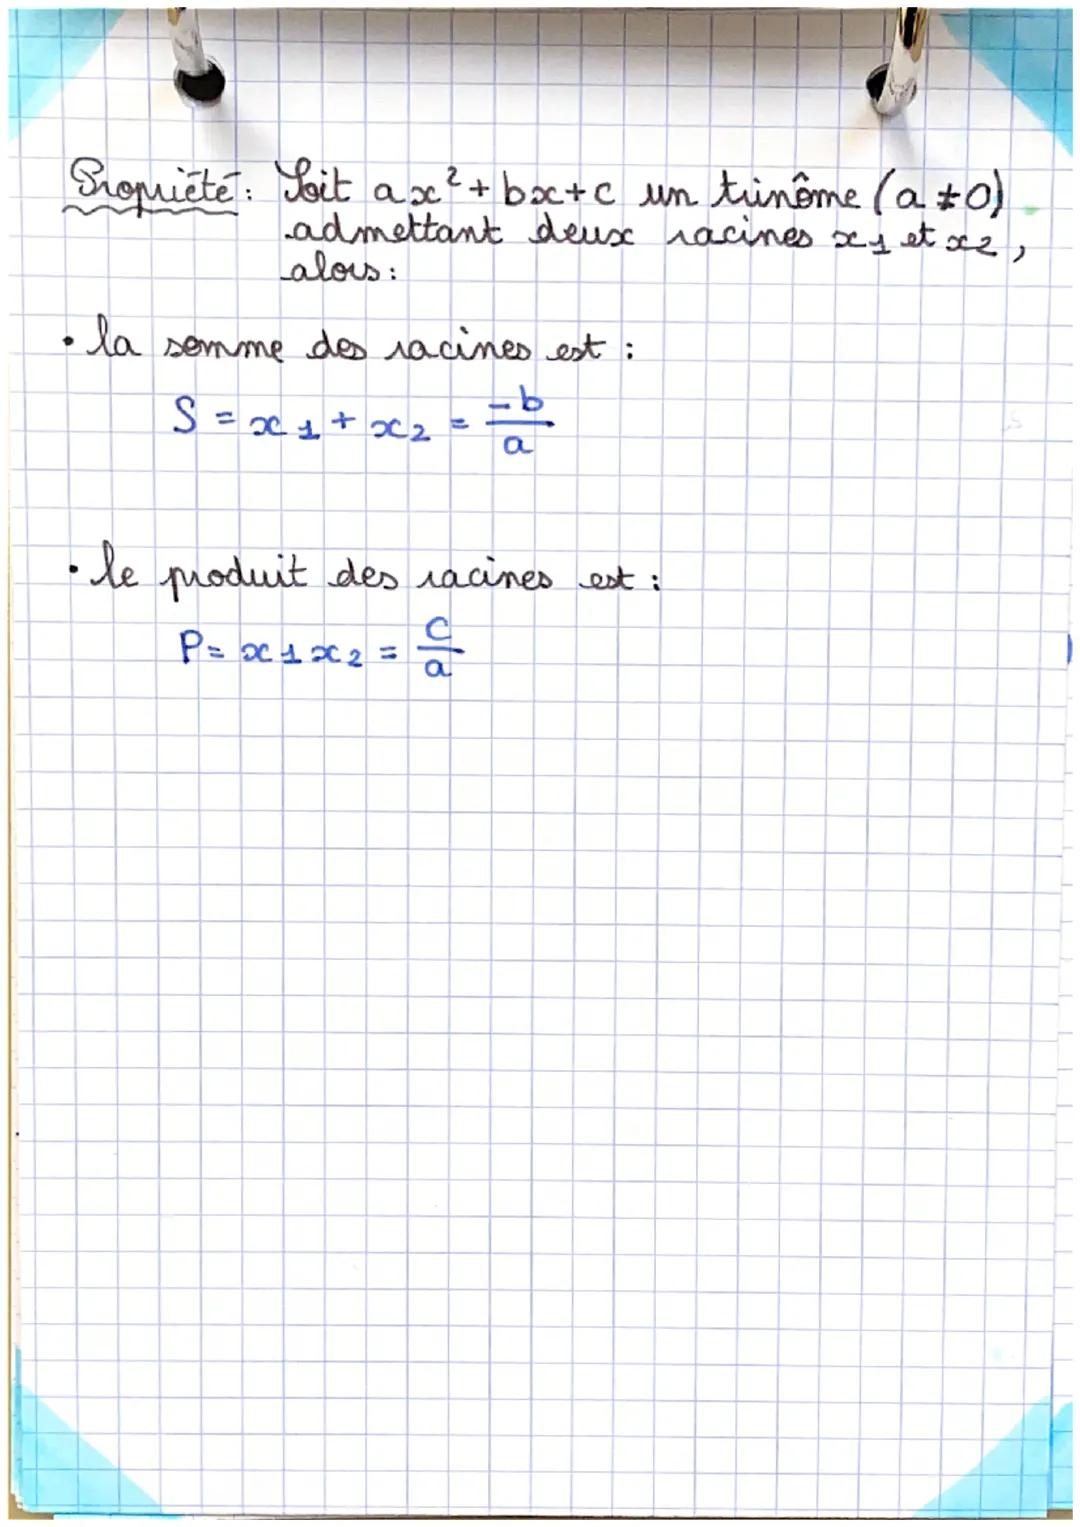 Propriété : Soit ax² + bx + c un trinôme (a ≠ 0)
admettant deux racines x₁ et x₂,
alors :
• la somme des racines est :
S = x₁ + x₂ = -b/a
• le produit des racines est :
P = x₁x₂ = c/a